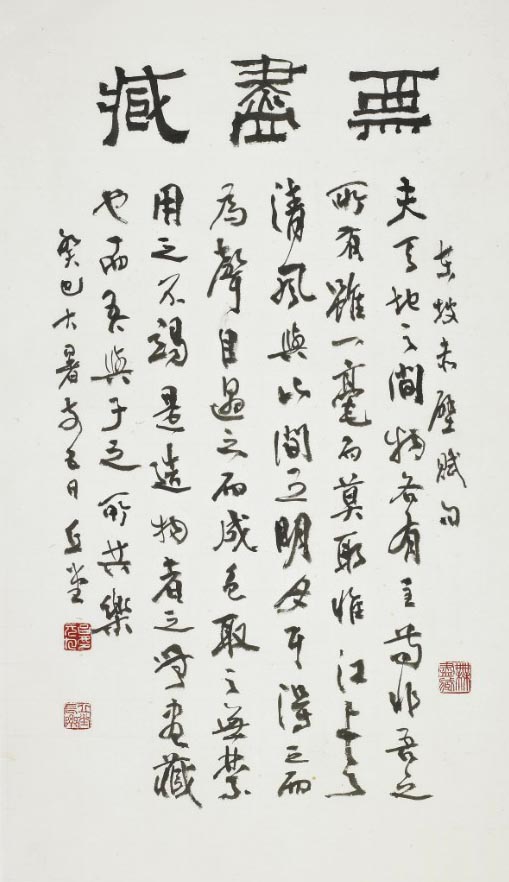 無盡藏
東坡赤壁賦句
夫天地之間物各有主苟非吾之
所有雖一毫而莫取惟江上之
清風與山間之明月耳得之而
為聲目遇之而成色取之無禁
用之不竭是造物者之無盡藏
也而吾與子之所共樂
癸巳大暑前五日丘堂
無盡藏